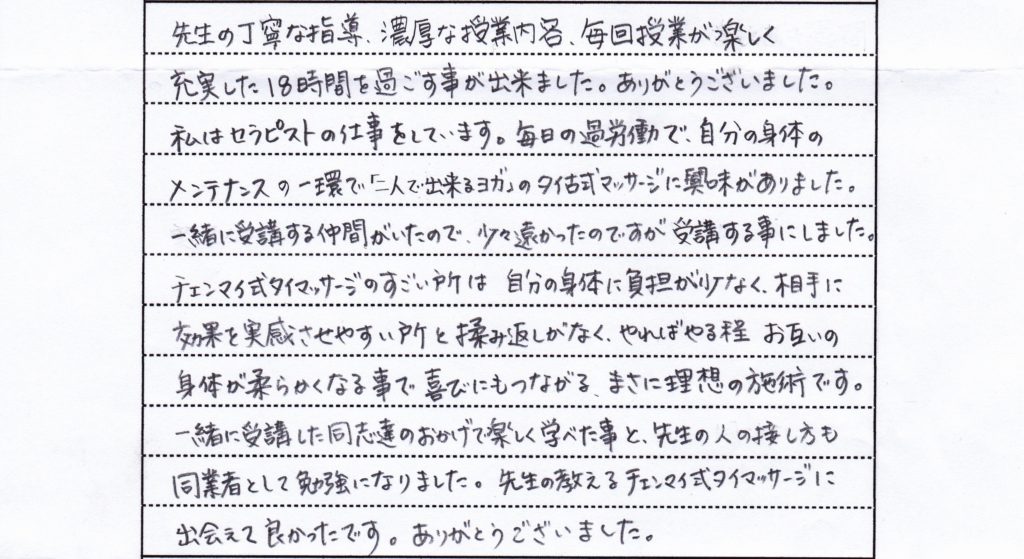 先生の丁寧な指導、濃厚な授業内容、毎回授業が楽しく
充実した18時間を過ごす事が出来ました。ありがとうございました。
私はセラピストの仕事をしています。毎日の過労働で、自分の身体の
メンテナンスの一環で「二人で出来るヨガ」のタイ古式マッサージに興味がありました。
一緒に受講する仲間がいたので、少々遠かったのですが受講する事にしました。
チェンマイ式タイマッサージのすごい所は 自分の身体に負担が少なく、相手に
効果を実感させやすい所と揉み返しがなく、やればやる程 お互いの
身体が柔らかくなる事で喜びにもつながる、まさに理想の施術です。
一緒に受講した同志達のおかげで楽しく学べた事と、先生の人の接し方も
同業者として勉強になりました。先生の教えるチェンマイ式タイマッサージに
出会えて良かったです。ありがとうございました。